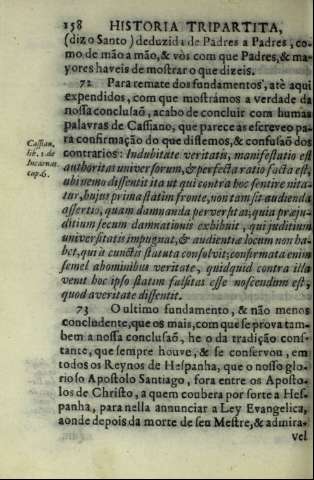 158 HISTORIA TRIPARTITA,
(diz o Santo) deduzida de Padres a Padres, co-
mo de mão a mão, & vòs com que Padres, & ma-
yores haveis de mostrar o que dizeis.
72 Para remate dos fundamentos, atè aqui
expendidos, com que mostrámos a verdade da
nossa conclusaõ, acabo de concluir com humas
palavras de Cassiano, que parece as escreveo pa-
ra confirmação do que dissemos, & confusaõ dos
contrarios: Indubitatæ veritatis, manifestatio est
authoritas universorum, & perfecta ratio facta est,
ubi nemo dissentit ita ut qui contra hoc sentire nita-
tur, hujus prima statim fronte, non tam sit audienda
assertio, quam damnanda perversitas; quia præju-
ditium secum damnationis exhibuit, qui juditium
universitatis impugnat, & audientiæ locum non ha-
bet, qui à cunctis statuta convolvit; confirmata enim
semel ab omnibus veritate, quidquid contra illa
venit hoc ipso statim falsitas esse noscendum est,
quod a veritate dissentit.
Cassian.
lib. 1. de
Incarnat.
cap. 6.
73 O ultimo fundamento, & não menos
concludente, que os mais, com que se prova tam-
bem a nossa conclusaõ, he o da tradição cons-
tante, que sempre houve, & se conservou, em
todos os Reynos de Hespanha, que o nosso glo-
rioso Apostolo Santiago, fora entre os Aposto-
los de Christo, a quem coubera por sorte a Hes-
panha, para nella annunciar a Ley Evangelica,
aonde depois da morte de seu Mestre, & admira-
vel